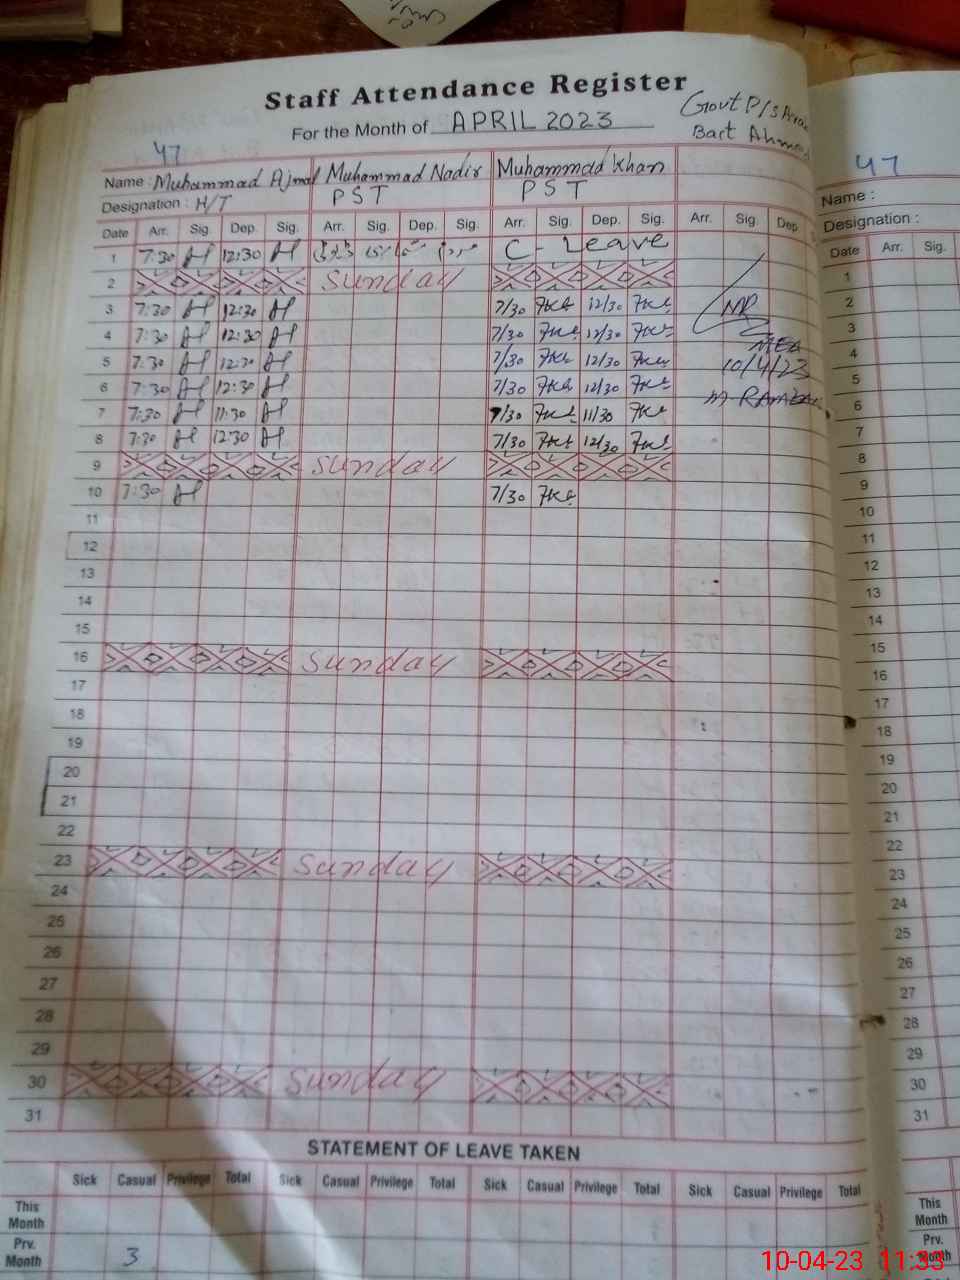 Staff Attendance Register
For the Month of APRIL 2023
Govt P/S
Bait Ahmed
47
Name : Muhammad Ajmal Muhammad Nadir Muhammad Khan
Designation : H/T PST PST
Date Arr. Sig. Dep. Sig. Arr. Sig. Dep. Sig. Arr. Sig. Dep. Sig. Arr. Sig. Dep
1 7:30 12:30 C - Leave
2 Sunday
3 7:30 12:30 7/30 12/30
4 7:30 12:30 7/30 12/30
5 7:30 12:30 7/30 12/30
6 7:30 12:30 7/30 12/30
7 7:30 11:30 7/30 11/30
8 7:30 12:30 7/30 12/30
9 Sunday
10 7:30 7/30
MEA
10/4/23
11
12
13
14
15
16 Sunday
17
18
19
20
21
22
23 Sunday
24
25
26
27
28
29
30 Sunday
31
STATEMENT OF LEAVE TAKEN
Sick Casual Privilege Total Sick Casual Privilege Total Sick Casual Privilege Total Sick Casual Privilege Total
This Month
Prv. Month 3
47
Name :
Designation :
Date Arr. Sig.
1
2
3
4
5
6
7
8
9
10
11
12
13
14
15
16
17
18
19
20
21
22
23
24
25
26
27
28
29
30
31
This
Month
Prv.
Month
10-04-23 11:33